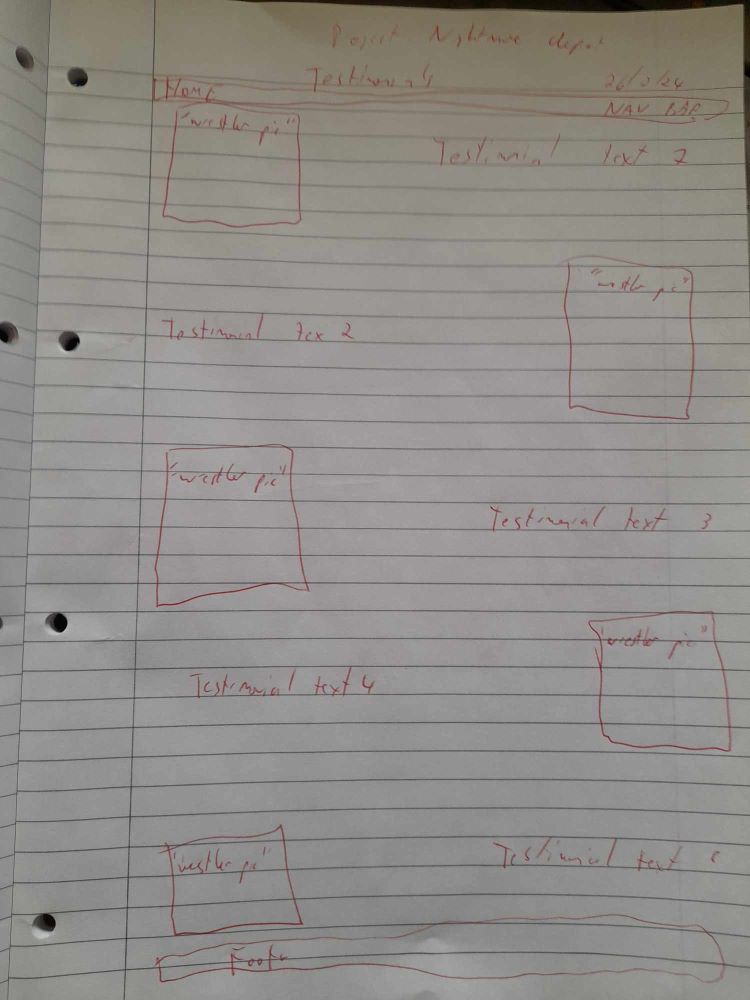 Project Nightmare depot
Testimonials 26/2/24
Home
NAV BAR
"wrestler pic"
Testimonial text
"wrestler pic"
Testimonial tex 2
"wrestler pic"
Testimonial text 3
"wrestler pic"
Testimonial text 4
"wrestler pic"
Testimonial text
Footer